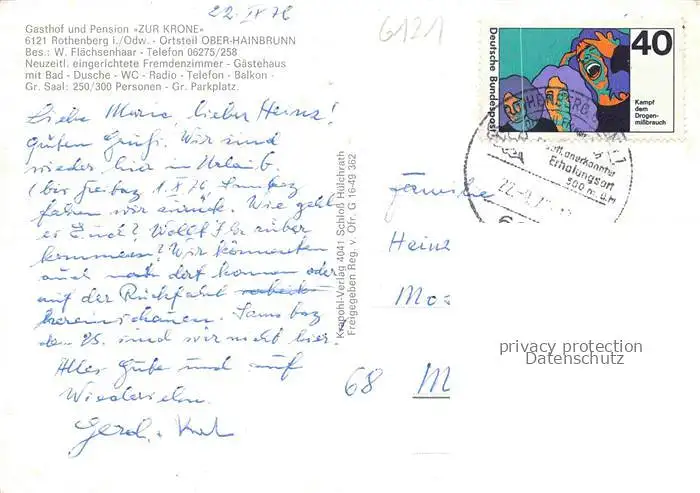 22. IX 76
6121
Gasthof und Pension «ZUR KRONE»
6121 Rothenberg i./Odw. - Ortsteil OBER-HAINBRUNN
Bes.: W. Flächsenhaar - Telefon 06275/258
Neuzeitl. eingerichtete Fremdenzimmer - Gästehaus
mit Bad - Dusche - WC - Radio - Telefon - Balkon -
Gr. Saal: 250/300 Personen - Gr. Parkplatz.
Liebe Marie, lieber Heinz!
Guten Gruß. Wir sind
wieder hier in Urlaub.
(bis freitag 1.X 76. Samstag
fahren wir zurück. Wie geht
es Euch? Wollt Ihr rüber
kommen? Wir könnten
auch dort kommen oder
auf der Rückfahrt
hereinschauen. Samstag
den 25. sind wir nicht hier.
Alles Gute und auf
Wiedersehn.
Gerd
Krapohl-Verlag 4041 Schloß Hülchrath
Freigegeben Reg. v. Ofr. G 16-49 362
Deutsche Bundespost
40
Kampf
dem
Drogen-
mißbrauch
ROTHENBERG
Staatl. anerkannter
Erholungsort
500 m ü. M
Familie
Heinz
Mo
68 M
privacy protection
Datenschutz